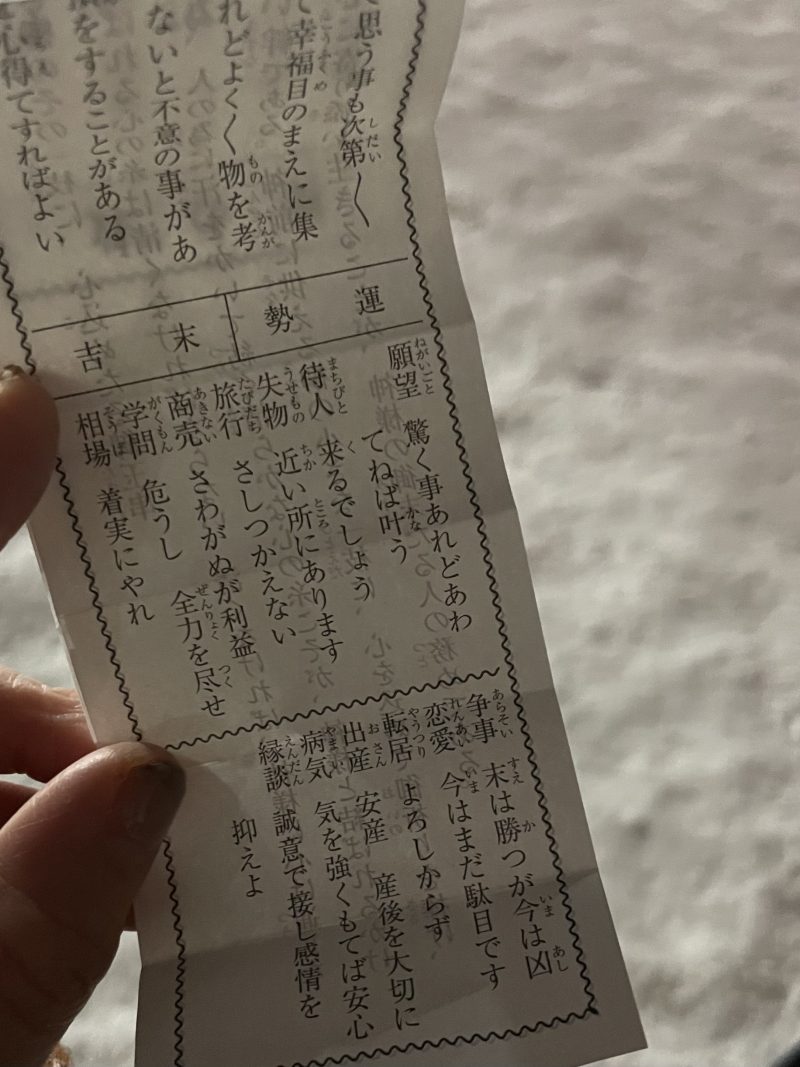 思う事も次第〱
て幸福目のまえに集
れどよく〱物を考
ないと不意の事があ
をすることがある
心得てすればよい
運勢
末吉
願望 驚く事あれどあわ
てねば叶う
待人 来るでしょう
失物 近い所にあります
旅行 さしつかえない
商売 さわがぬが利益
学問 危うし 全力を尽せ
相場 着実にやれ
争事 末は勝つが今は凶
恋愛 今はまだ駄目です
転居 よろしからず
出産 安産 産後を大切に
病気 気を強くもてば安心
縁談 誠意で接し感情を
抑えよ